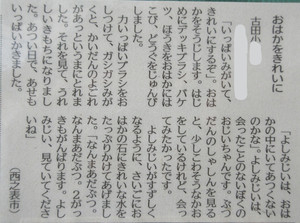 おはかをきれいに
吉田 小
「いっぱいみがいて、
きれいにするぞ」。おは
かをそうじします。はじ
めにデッキブラシ、バケ
ツ、ほうきをおはかには
こび、どうぐをじゅんび
しました。
力いっぱいブラシをお
しつけて、ガシガシみが
くと、かいだんのよごれ
があっというまにとれま
した。それを見て、うれ
しいきもちになりまし
た。あつい日で、あせも
いっぱいかきました。
「よしみじいは、おは
かの中にいてあつくない
のかな」。よしみじいは、
会ったことのないぼくの
おじいちゃんです。ぶつ
だんのしゃしんを見る
と、少しこわそうなかお
をしているけれど、会っ
てみたかったです。
よしみじいがすずしく
なるように、さいごにお
はかの石にきれいな水を
たっぷりかけてあげまし
た。「なんまあだぶつ。
なんまあだぶつ。二がっ
きもがんばります。よし
みじい、見ていてくださ
いね」
(西之表市)